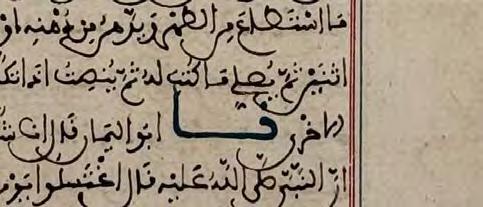 ما استطاع من الطهر ويدهن من دهنه او
اثنين ثم يصلي ما كتب له ثم ينصت اذا تك
الاخرى نا ابو اليمان قال انا ش
ان النبي صلى الله عليه قال اغتسلوا يوم